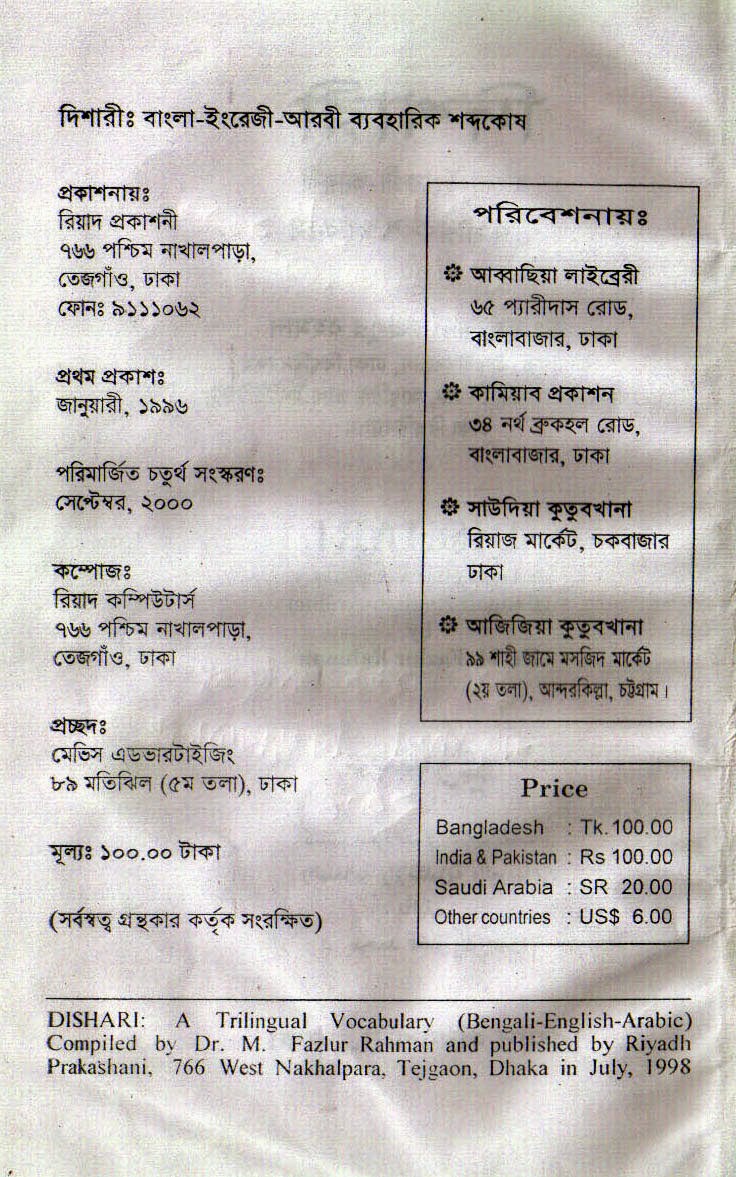 দিশারীঃ বাংলা-ইংরেজী-আরবী ব্যবহারিক শব্দকোষ
প্রকাশনায়ঃ
রিয়াদ প্রকাশনী
৭৬৬ পশ্চিম নাখালপাড়া,
তেজগাঁও, ঢাকা
ফোনঃ ৯১১১০৬২
প্রথম প্রকাশঃ
জানুয়ারী, ১৯৯৬
পরিমার্জিত চতুর্থ সংস্করণঃ
সেপ্টেম্বর, ২০০০
কম্পোজঃ
রিয়াদ কম্পিউটার্স
৭৬৬ পশ্চিম নাখালপাড়া,
তেজগাঁও, ঢাকা
প্রচ্ছদঃ
মেভিস এডভারটাইজিং
৮৯ মতিঝিল (৫ম তলা), ঢাকা
মূল্যঃ ১০০.০০ টাকা
(সর্বস্বত্ব গ্রন্থকার কর্তৃক সংরক্ষিত)
পরিবেশনায়ঃ
আব্বাছিয়া লাইব্রেরী
৬৫ প্যারীদাস রোড,
বাংলাবাজার, ঢাকা
কামিয়াব প্রকাশন
৩৪ নর্থ ব্রুকহল রোড,
বাংলাবাজার, ঢাকা
সাউদিয়া কুতুবখানা
রিয়াজ মার্কেট, চকবাজার
ঢাকা
আজিজিয়া কুতুবখানা
৯৯ শাহী জামে মসজিদ মার্কেট
(২য় তলা), আন্দরকিল্লা, চট্টগ্রাম।
Price
Bangladesh : Tk. 100.00
India & Pakistan : Rs 100.00
Saudi Arabia : SR 20.00
Other countries : US$ 6.00
DISHARI: A Trilingual Vocabulary (Bengali-English-Arabic)
Compiled by Dr. M. Fazlur Rahman and published by Riyadh
Prakashani, 766 West Nakhalpara, Tejgaon, Dhaka in July, 1998